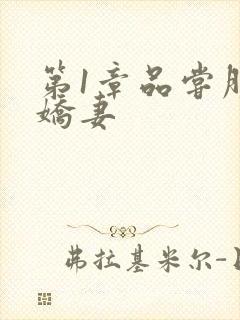 第1章品尝
娇妻
弗拉基米尔-